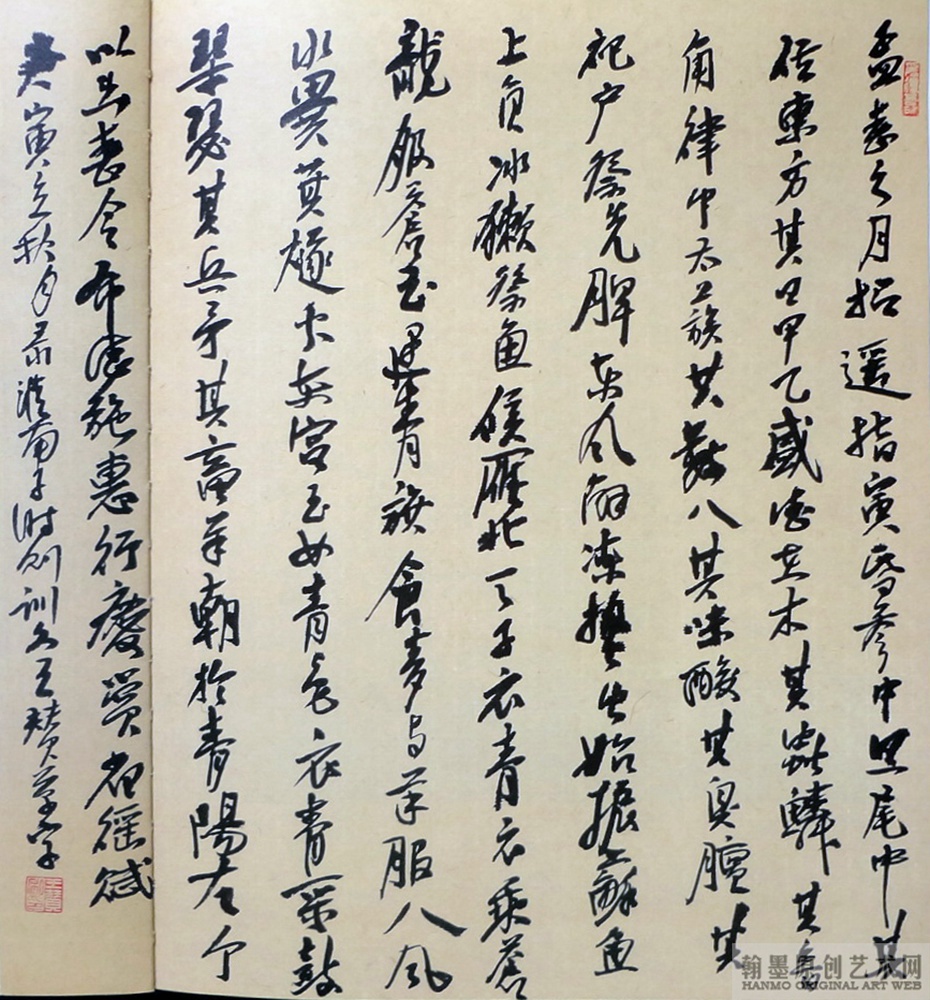 孟春之月招遥指寅昏参中旦尾中其
位東方其日甲乙盛德在木其蟲鱗其音
角律中太蔟其數八其味酸其臭膻其
祀户祭先脾东风解凍蟄虫始振蘇魚
上负冰獺祭魚候雁北天子衣青衣乘蒼
龍服蒼玉建青旗食麥与羊服八风
水爨萁燧火东宫玉女青色衣青采鼓
琴瑟其兵矛其畜羊朝於青陽左个
以出春令布德施惠行慶賞省徭賦
寅立秋月录淮南子时则训文王赞草字
翰墨原创艺术网
HANMO ORIGINAL ART WEB